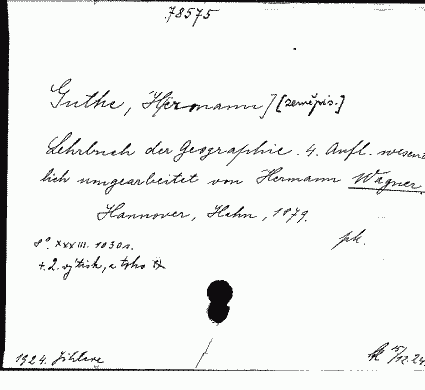 78575
Guthe, Hermann] [zeměpis.]
Lehrbuch der Geographie. 4. Aufl. wesent
lich umgearbeitet von Hermann Wagner.
Hannover, Hahn, 1879.
8°. XXXIII. 1030 s.
pk.
+ 2. výtisk, a toho
1924. Jihlava
15/12.24.